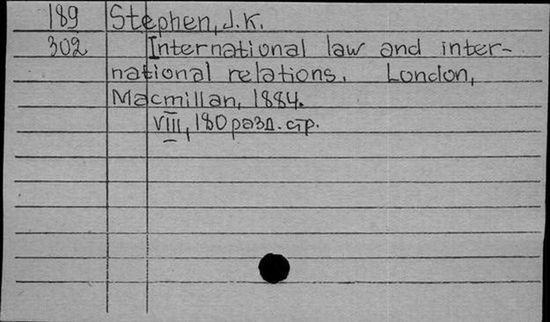 189 Stephen, J.K.
302 International law and inter-
national relations. London,
Macmillan, 1884.
VIII, 180 разд. стр.